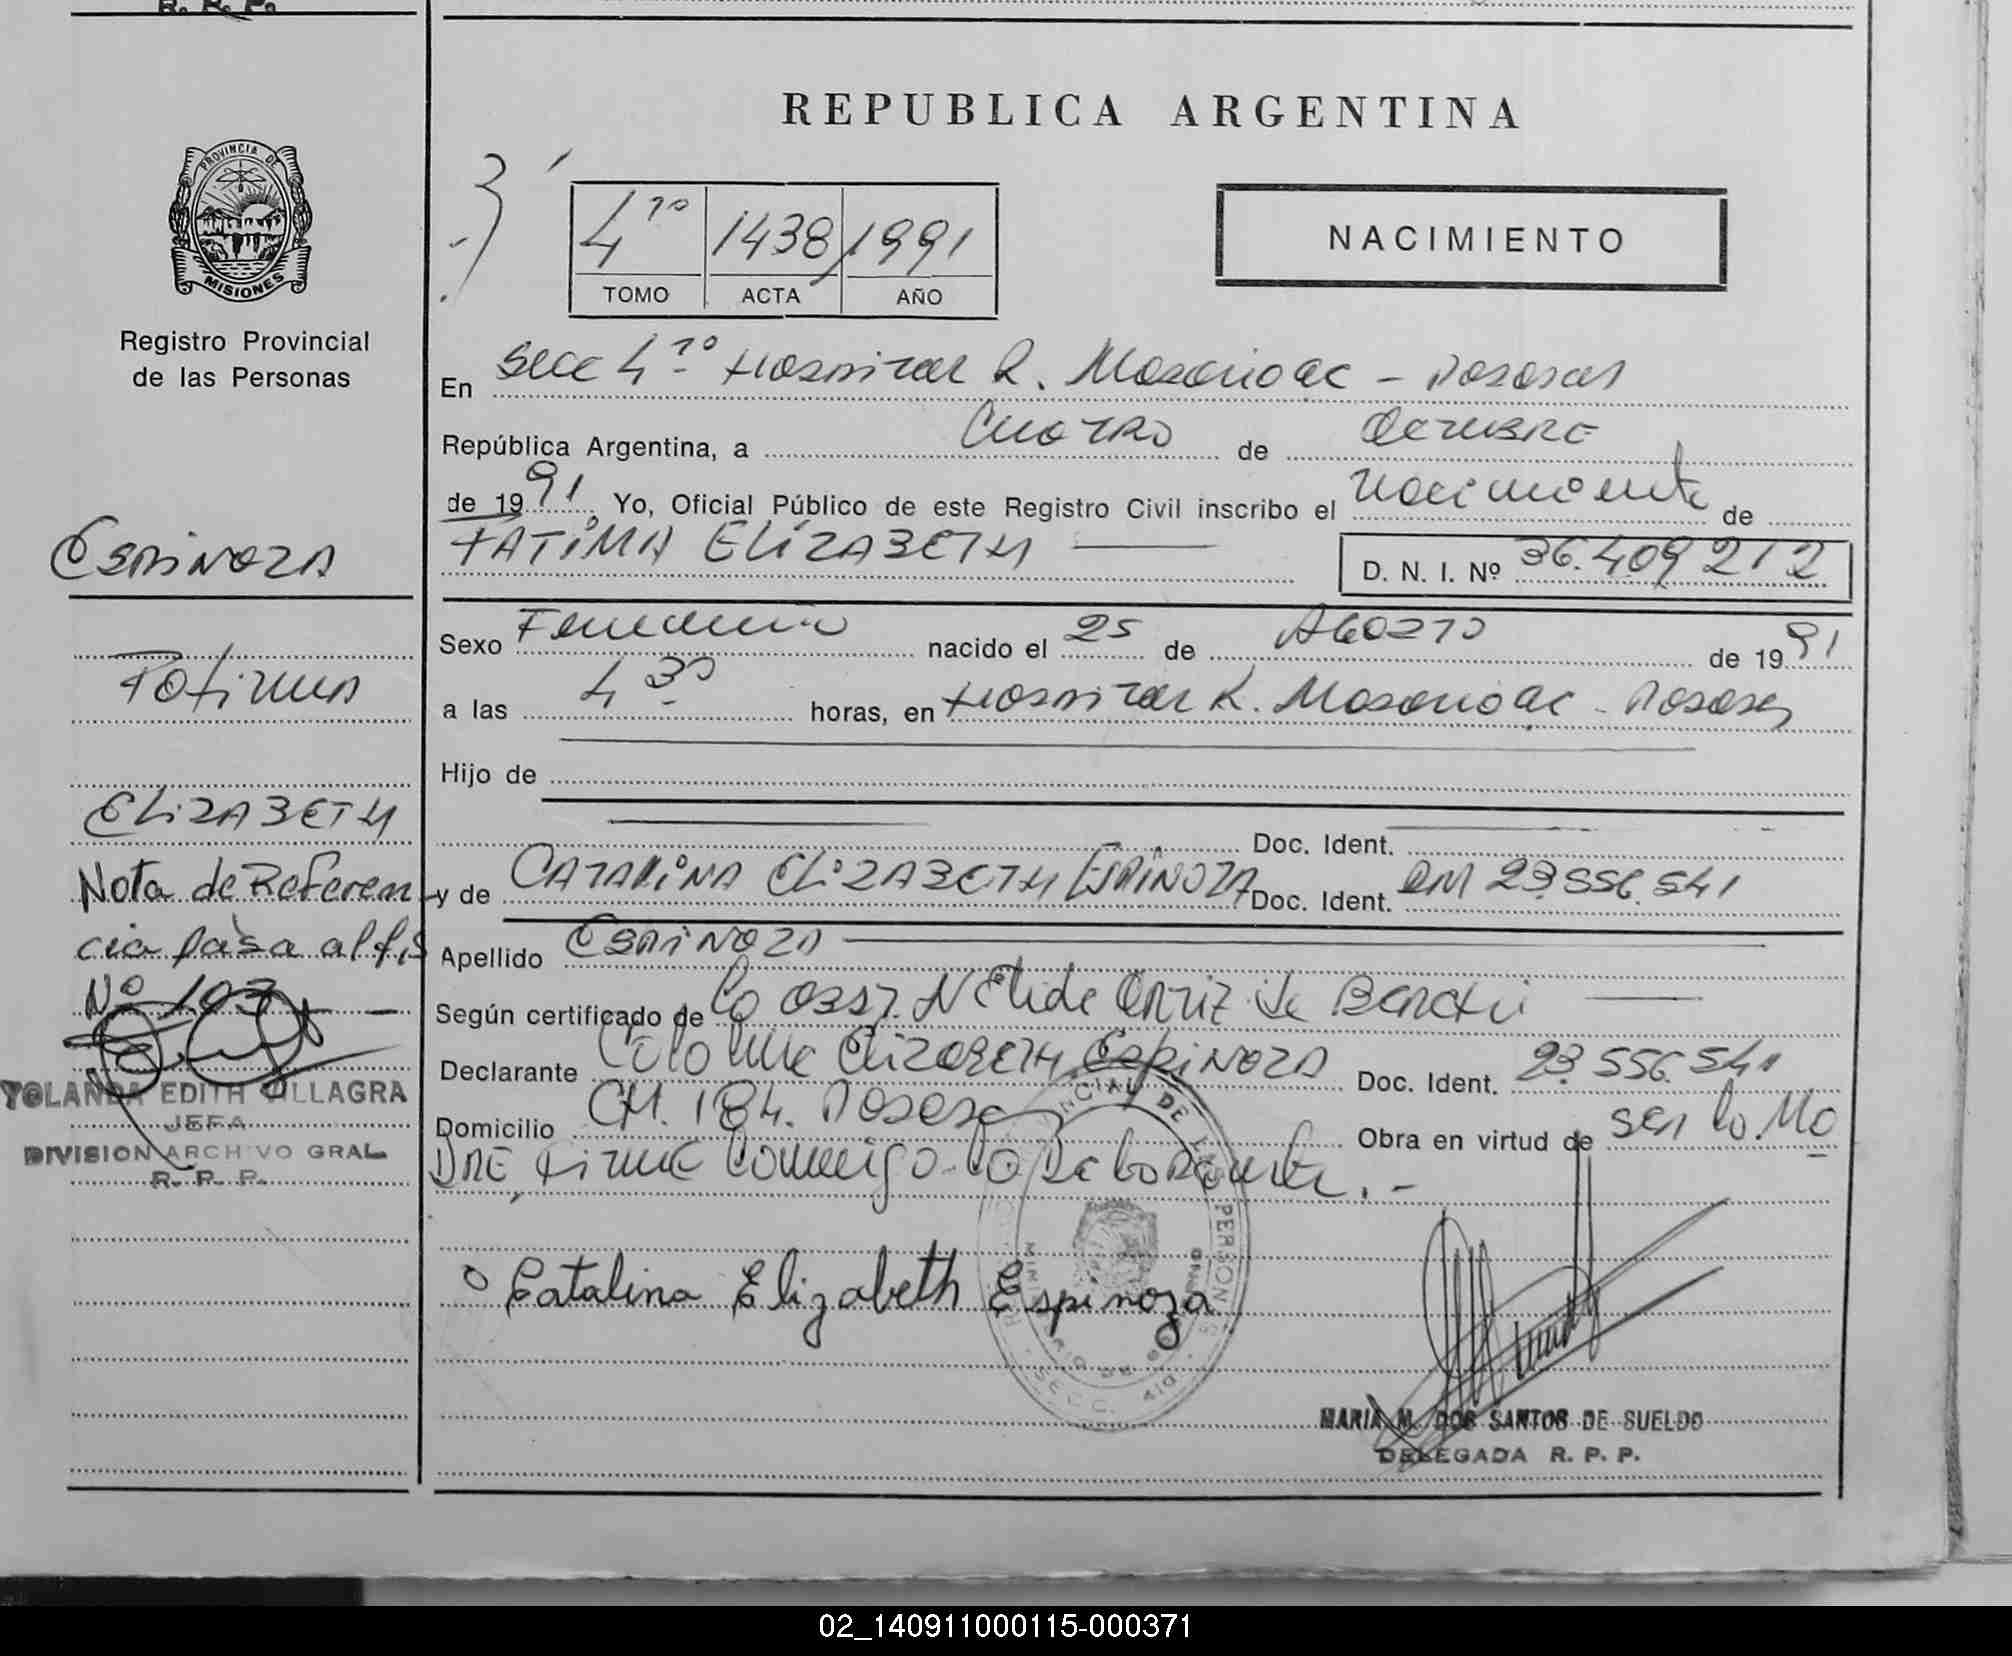 R. R. P.
REPUBLICA ARGENTINA
PROVINCIA DE
MISIONES
Registro Provincial
de las Personas
4to 1438 1991
TOMO ACTA AÑO
NACIMIENTO
En Secc 4to Hospital R. Madariaga - Posadas
República Argentina, a Cuatro de Octubre
de 1991. Yo, Oficial Público de este Registro Civil inscribo el nacimiento de
FATIMA ELIZABETH
D. N. I. Nº 36.409.212
Sexo Femenino nacido el 25 de AGOSTO de 1991
a las 4 30 horas, en Hospital R. Madariaga - Posadas
Hijo de
Doc. Ident.
y de CATALINA ELIZABETH ESPINOZA Doc. Ident. DNI 23.556.541
Apellido ESPINOZA
Según certificado de La Obst. Nelide Ortiz de
Declarante Catalina Elizabeth ESPINOZA Doc. Ident. 23.556.541
Domicilio CH. 184. Posadas Obra en virtud de ser la Ma
DRE, firma conmigo la Declarante.-
Catalina Elizabeth Espinoza
MARIA M. DOS SANTOS DE SUELDO
DELEGADA R. P. P.
ESPINOZA
Fatima
ELIZABETH
Nota de Referen
cia pasa al fis
Nº 103 -
YOLANDA EDITH VILLAGRA
JEFA
DIVISION ARCHIVO GRAL
R. P. P.
02_140911000115-000371